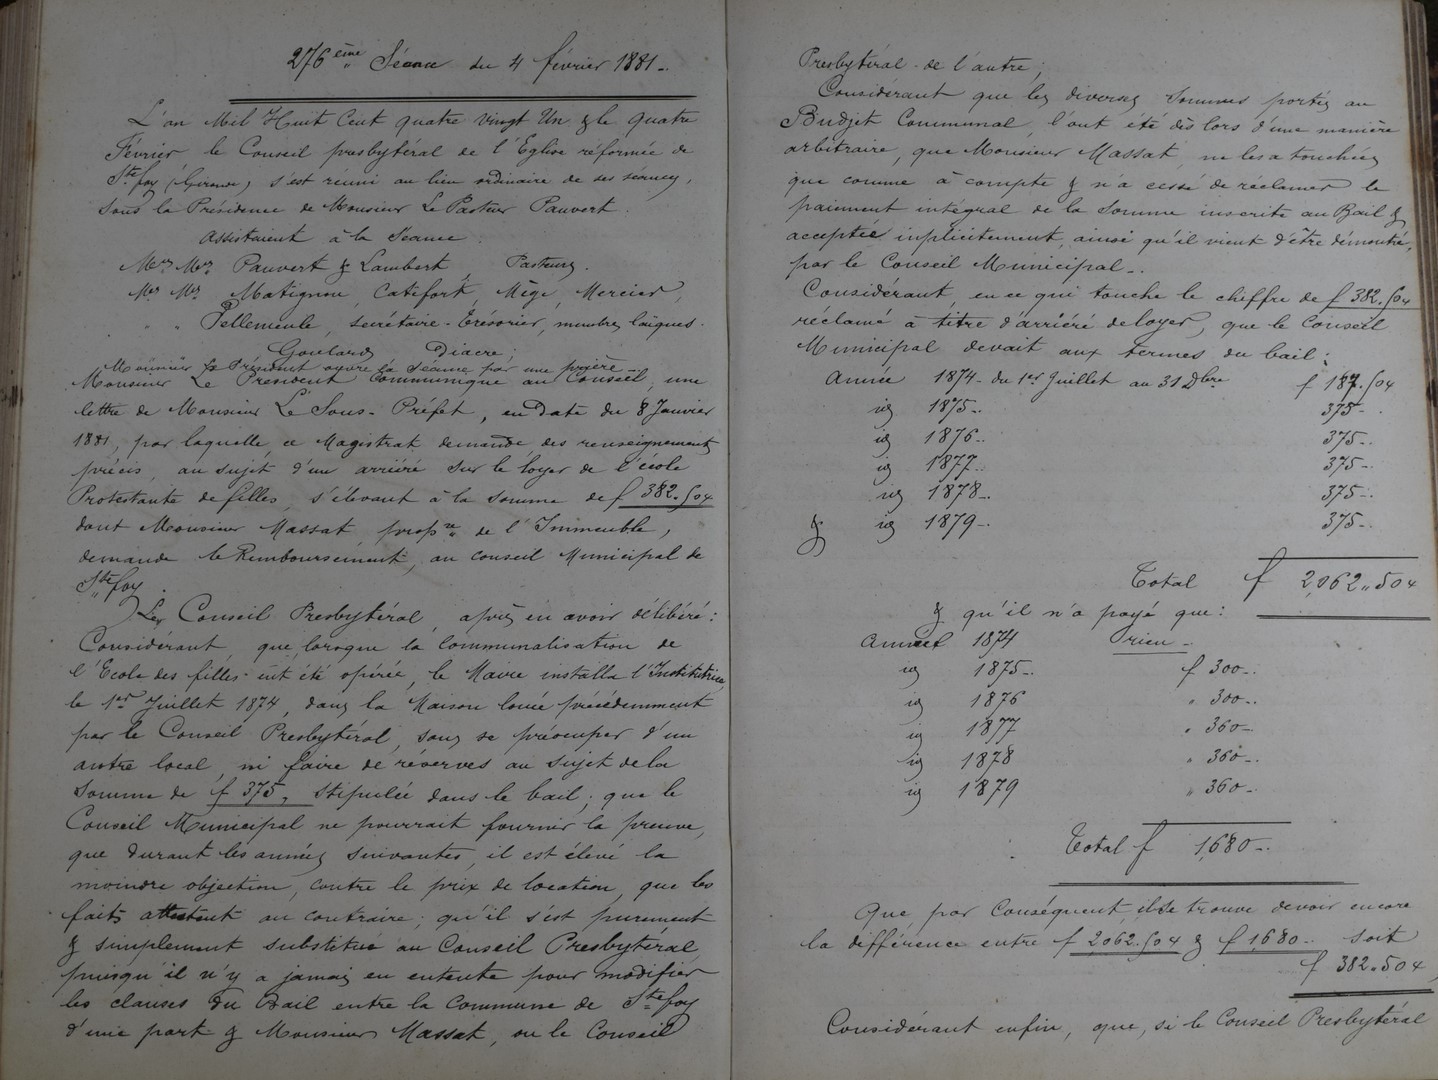 276ème Séance du 4 février 1881.
L'an Mil Huit Cent quatre vingt Un & le quatre
Février, le Conseil presbytéral de l'Eglise réformée de
Ste foy (Gironde) s'est réuni au lieu ordinaire de ses séances,
sous la Présidence de Monsieur Le Pasteur Pauvert.
Assistaient à la Séance
Mrs Mrs Pauvert & Lambert, Pasteurs.
Mrs Mrs Matignon, Catifort, Mège, Mercier,
" " Pellemeule, secrétaire-Trésorier, membres laïques.
Goulard Diacre;
Monsieur Le Président ouvre la Séance par une prière.
Monsieur Le Président communique au Conseil, une
lettre de Monsieur Le Sous-Préfet, en date du 8 Janvier
1881, par laquelle ce Magistrat demande des renseignements
précis au sujet d'un arriéré sur le loyer de l'école
Protestante de filles, s'élevant à la somme de f 382.50c
dont Monsieur Massat, propre de l'Immeuble,
demande le Remboursement, au conseil Municipal de
Ste foy.
Le Conseil Presbytéral, après en avoir délibéré:
Considérant, que lorsque la communalisation de
l'Ecole des filles eût été opérée, le Maire installa l'Institutrice
le 1er Juillet 1874, dans la Maison louée précédemment
par le Conseil Presbytéral, sans se préoccuper d'un
autre local, ni faire de réserves au sujet de la
somme de f 375, stipulée dans le bail; que le
Conseil Municipal ne pourrait fournir la preuve,
que durant les années suivantes, il est élevé la
moindre objection, contre le prix de location, que les
faits attestent au contraire; qu'il s'est purement
& simplement substitué au Conseil Presbytéral
puisqu'il n'y a jamais eu entente pour modifier
les clauses du Bail entre la Commune de Ste foy
d'une part & Monsieur Massat, ou le Conseil
Presbytéral de l'autre;
Considérant que les diverses sommes portées au
Budget Communal, l'ont été dès lors d'une manière
arbitraire, que Monsieur Massat, ne les a touchées
que comme à compte & n'a cessé de réclamer le
paiement intégral de la somme inscrite au Bail &
acceptée inplicitement, ainsi qu'il vient d'être démontré,
par le Conseil Municipal.
Considérant, en ce qui touche le chiffre de f 382.50c
réclamé à titre d'arriéré de loyer, que le Conseil
Municipal devait aux termes du bail:
Année 1874 - du 1er Juillet au 31 Xbre f 187.50c
id 1875 375
id 1876 375
id 1877 375
id 1878 375
& id 1879 375
Total f 2,062.50c
& qu'il n'a payé que:
Année 1874 rien
id 1875 f 300
id 1876 " 300
id 1877 " 360
id 1878 " 360
id 1879 " 360
Total f 1,680
Que par conséquent, il se trouve devoir encore
la différence entre f 2,062.50c & f 1,680 soit
f 382.50c
Considérant enfin, que, si le Conseil Presbytéral